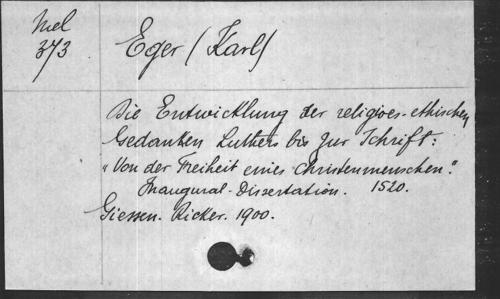 Mel
373
Eger (Karl)
Die Entwicklung der religiös-ethischen
Gedanken Luthers bis zur Schrift:
"Von der Freiheit eines Christenmenschen."
Inaugural-Dissertation. 1520.
Giessen. Ricker. 1900.